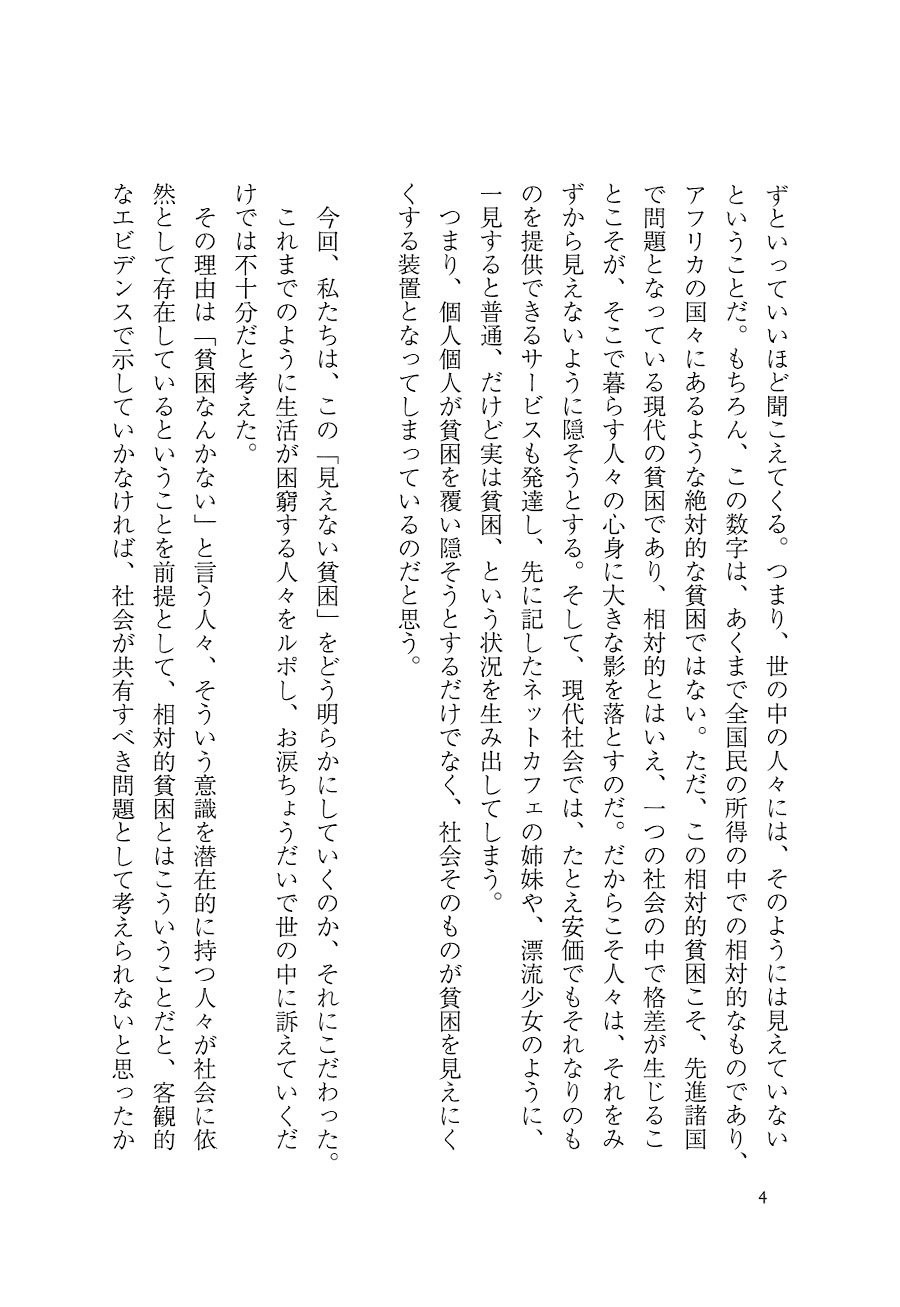 ずといっていいほど聞こえてくる。つまり、世の中の人々には、そのようには見えていない
ということだ。もちろん、この数字は、あくまで全国民の所得の中での相対的なものであり、
アフリカの国々にあるような絶対的な貧困ではない。ただ、この相対的貧困こそ、先進諸国
で問題となっている現代の貧困であり、相対的とはいえ、一つの社会の中で格差が生じるこ
とこそが、そこで暮らす人々の心身に大きな影を落とすのだ。だからこそ人々は、それをみ
ずから見えないように隠そうとする。そして、現代社会では、たとえ安価でもそれなりのも
のを提供できるサービスも発達し、先に記したネットカフェの姉妹や、漂流少女のように、
一見すると普通、だけど実は貧困、という状況を生み出してしまう。
つまり、個人個人が貧困を覆い隠そうとするだけでなく、社会そのものが貧困を見えにく
くする装置となってしまっているのだと思う。
今回、私たちは、この「見えない貧困」をどう明らかにしていくのか、それにこだわった。
これまでのように生活が困窮する人々をルポし、お涙ちょうだいで世の中に訴えていくだ
けでは不十分だと考えた。
その理由は「貧困なんかない」と言う人々、そういう意識を潜在的に持つ人々が社会に依
然として存在しているということを前提として、相対的貧困とはこういうことだと、客観的
なエビデンスで示していかなければ、社会が共有すべき問題として考えられないと思ったか
4